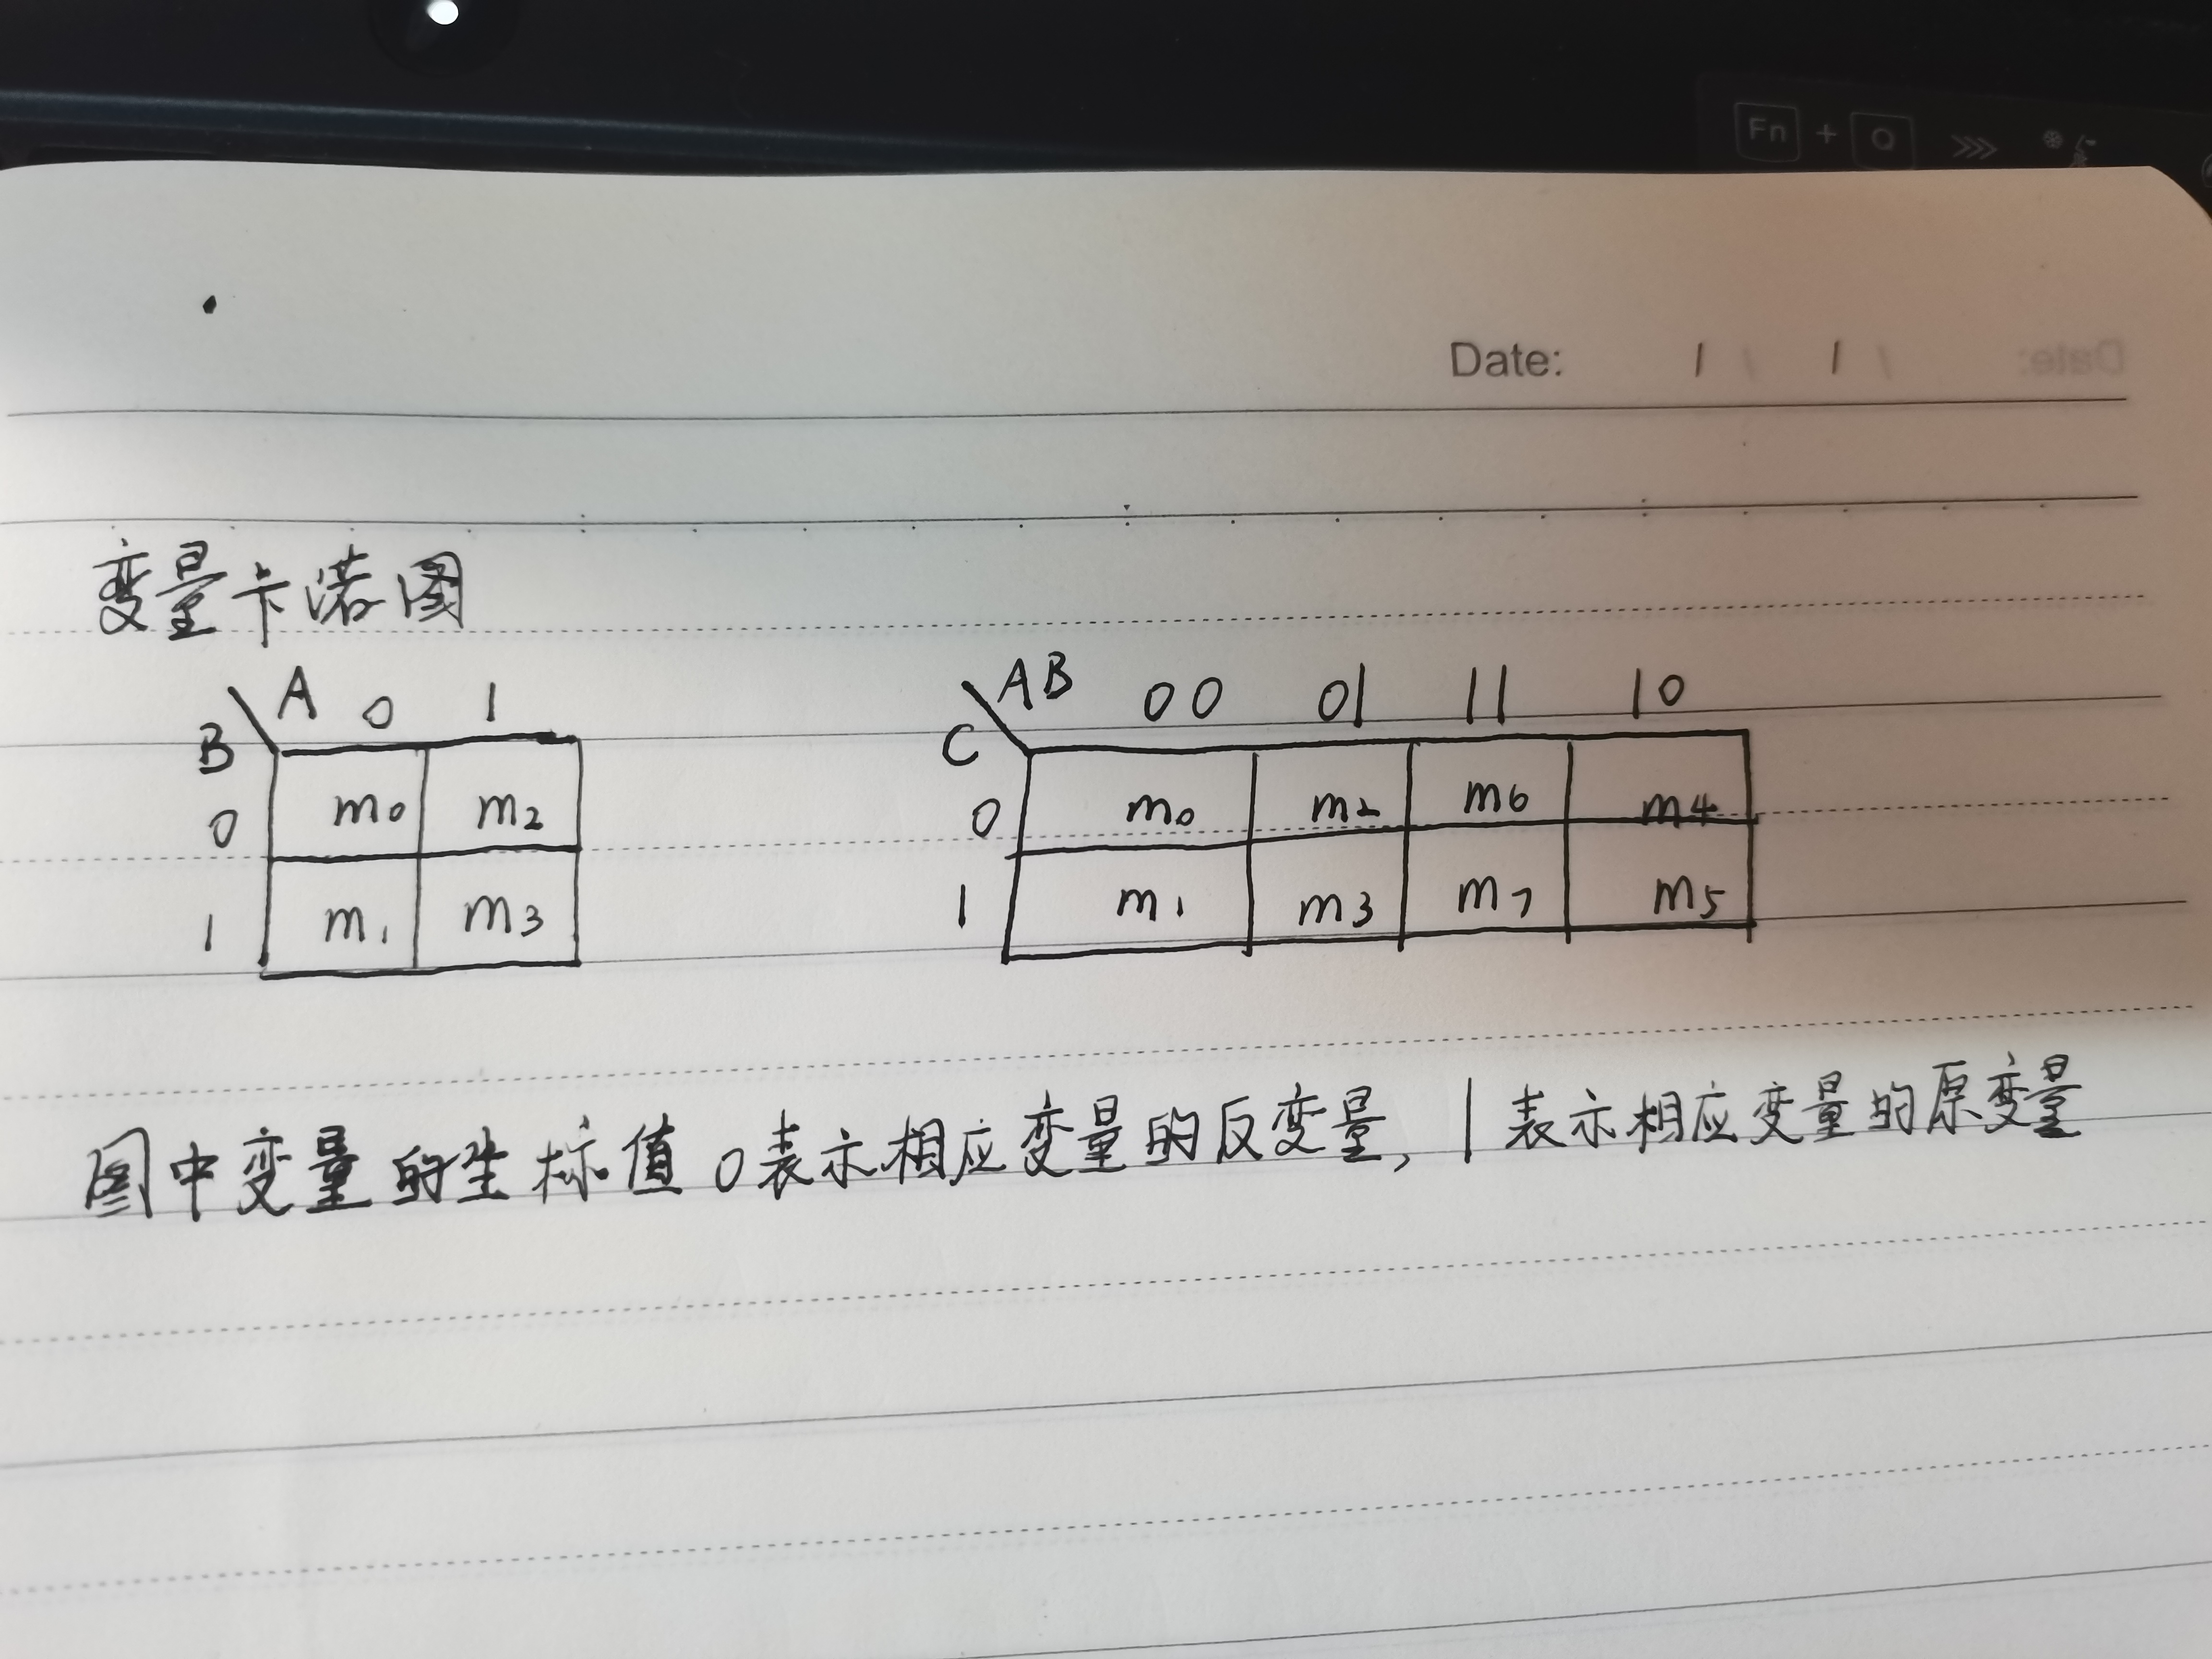 Fn + Q >>>
Date: / /
变量卡诺图
A 0 1
B
0 m0 m2
1 m1 m3
AB 00 01 11 10
C
0 m0 m2 m6 m4
1 m1 m3 m7 m5
图中变量的坐标值0表示相应变量的反变量,1表示相应变量的原变量